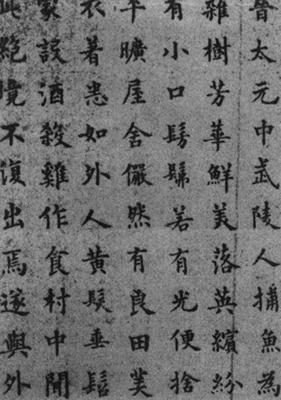 晉太元中武陵人捕魚為
雜樹芳華鮮美落英繽紛
有小口髣髴若有光便捨
平曠屋舍儼然有良田美
衣著悉如外人黃髮垂髫
家設酒殺雞作食村中聞
此絕境不復出焉遂與外